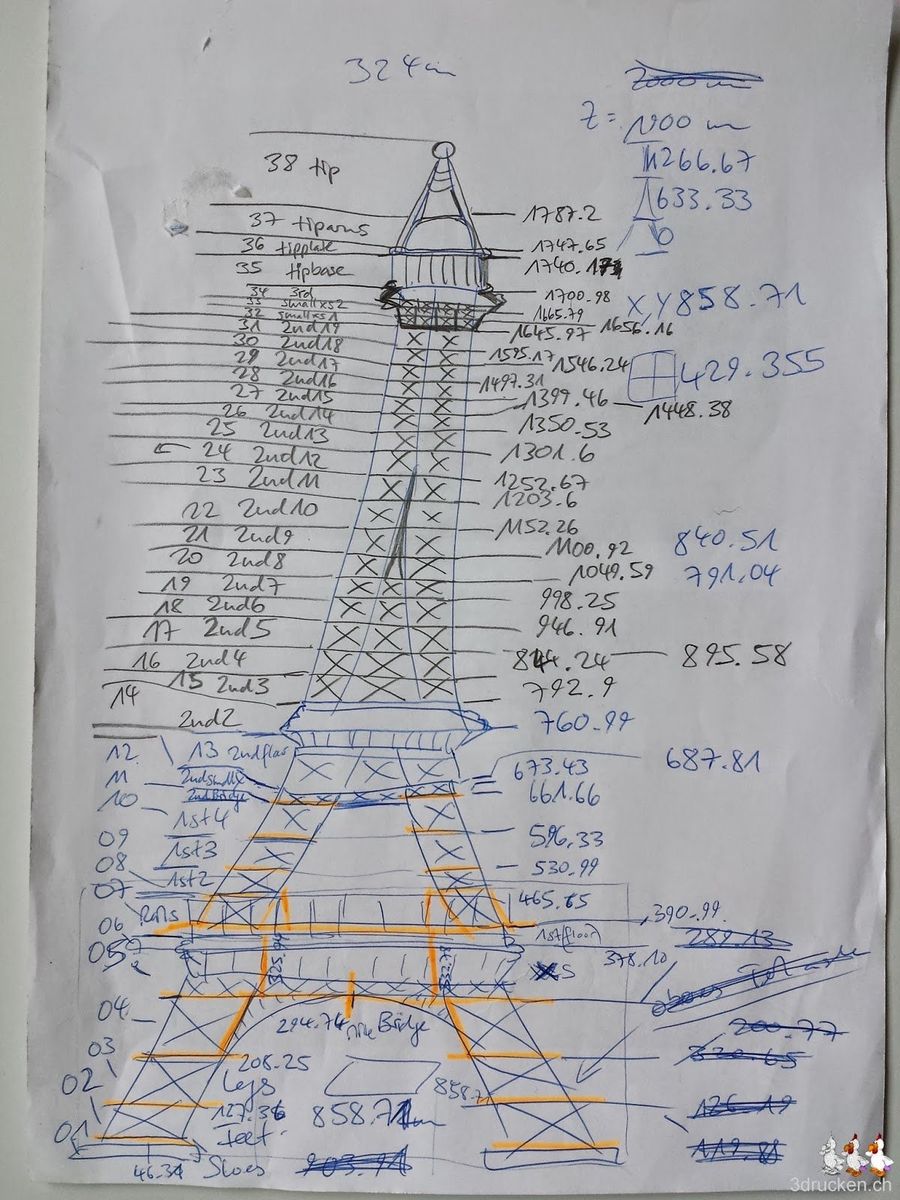 324m
Z=
1900 m
1266.67
633.33
0
38 tip
1787.2
37
36 tipplate
1747.65
35 tipbase
1740.
34 3rd
1700.98
33 smallxs2
1665.79
X,Y 858.71
32 smallxs1
1656.16
31 2nd19
1645.97
30 2nd18
1595.17
1546.24
29 2nd17
28 2nd16
1497.31
429.355
27 2nd15
1399.46
1448.38
26 2nd14
1350.53
25 2nd13
24 2nd12
1301.6
23 2nd11
1252.67
1203.6
22 2nd10
1152.26
21 2nd9
1100.92
840.51
20 2nd8
1049.59
791.04
19 2nd7
998.25
18 2nd6
946.91
17 2nd5
16 2nd4
895.58
15 2nd3
792.9
14
2nd2
760.99
12
13 2ndfloor
687.81
11
673.43
10
2ndBridge
661.66
1st4
09
596.33
1st3
08
530.99
1st2
07
465.65
390.99
06
289.13
1stfloor
378.10
05
325.74
04
294.74
Bridge
200.77
03
208.25
Legs
858.7
02
127.36
858.71m
feet
01
46.34
Shoes
903.94
3drucken.ch